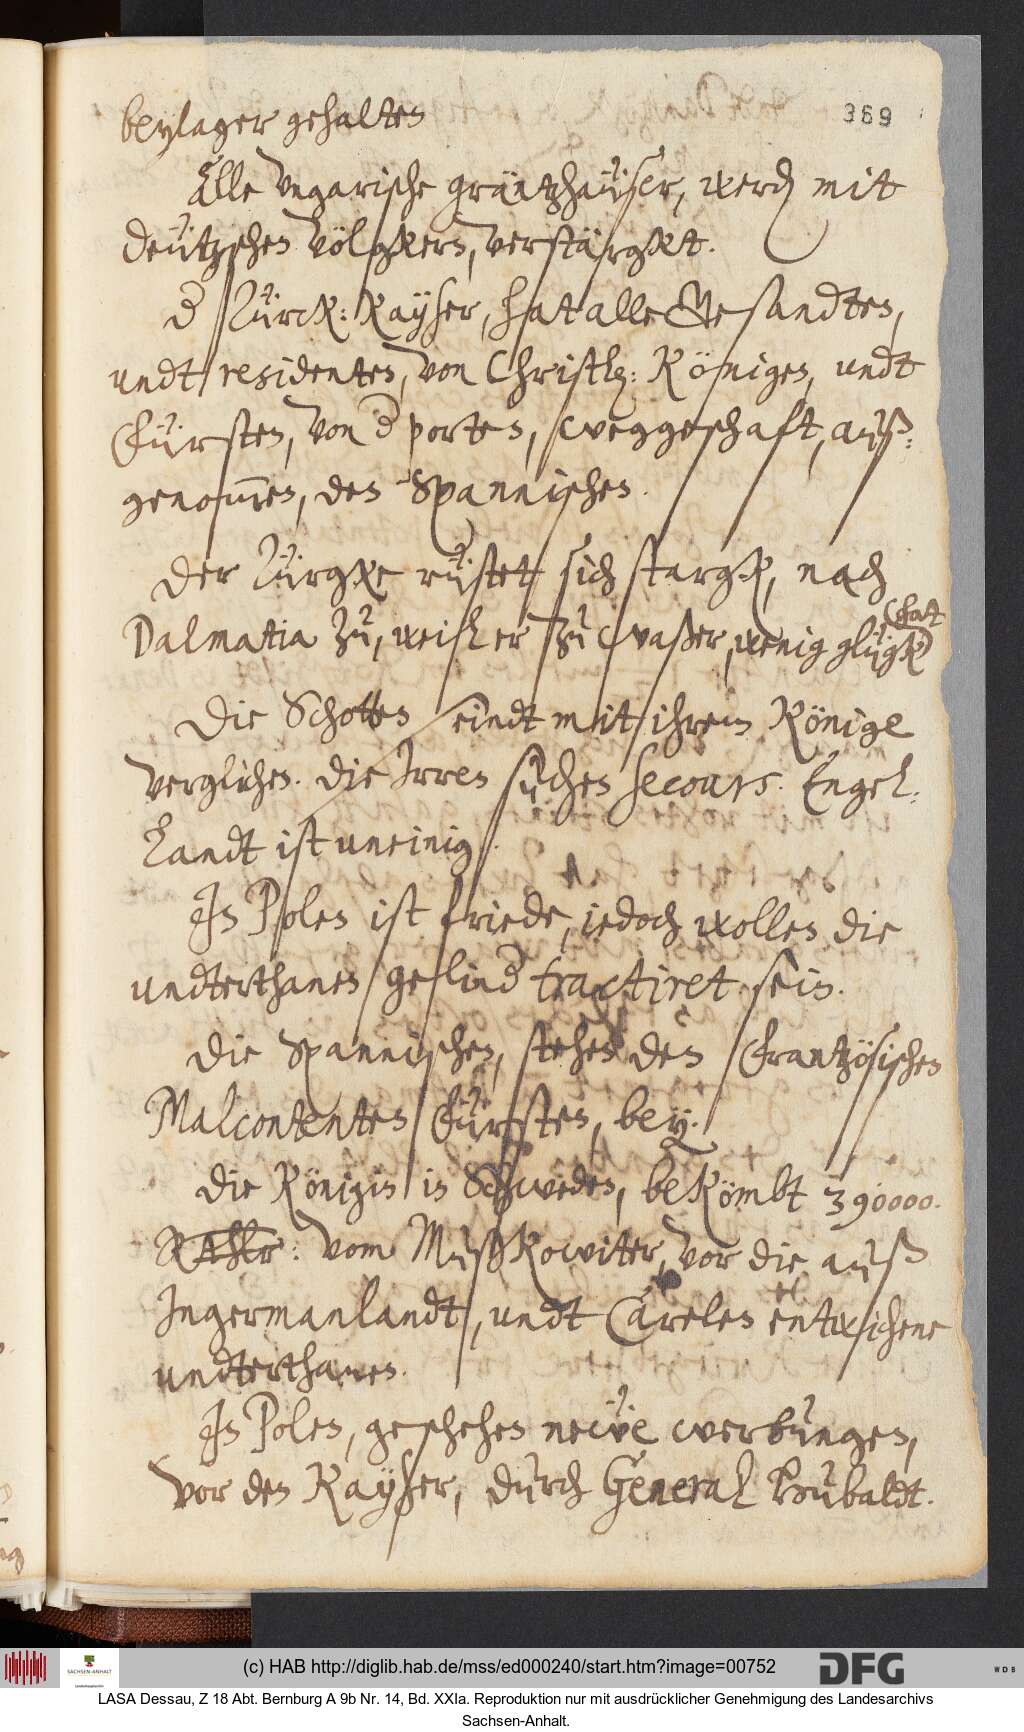 369
beylager gehalten
Alle Vngarische gräntzhaüser, werden mit
deützschen Völgkern, verstärgkt.
d Türck: Kayser, hat alle Gesandten,
undt residenten, von Christlichen: Königen, undt
Fürsten, von der porten, weggeschaft, auß:
genommen, den Spannischen.
Der Türgke rüstet sich stargk, nach
Dalmatia zu, weil er zu waßer, wenig glügk
hat
Die Schotten seindt mit ihrem Könige
verglichen. die Irren suchen secours. Engel:
landt ist uneinig.
In Polen ist friede, iedoch wollen die
undterthanen gelind tractiret sein.
Die Spannischen, stehen den Frantzösischen
Malcontenten Fürsten, bey.
Die Königin in Schweden, bekömbt 390000.
Rthlr: vom Mußkowiter, vor die auß
Ingermanlandt, undt Carelen entwichene
undterthanen.
In Polen, geschehen newe werbungen,
vor den Kayser, durch General Houbaldt.
(c) HAB http://diglib.hab.de/mss/ed000240/start.htm?image=00752
SACHSEN-ANHALT
DFG
WDB
LASA Dessau, Z 18 Abt. Bernburg A 9b Nr. 14, Bd. XXIa. Reproduktion nur mit ausdrücklicher Genehmigung des Landesarchivs
Sachsen-Anhalt.